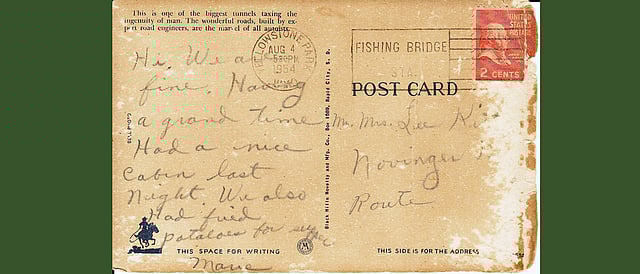 This is one of the biggest tunnels taxing the
ingenuity of man. The wonderful roads, built by ex-
pert road engineers, are the marvel of all augists.
Hi. We are
fine. Having
a grand time
Had a nice
Cabin last
Night. We also
Had fried
potatoes for supper
Marie
THIS SPACE FOR WRITING
BELL PHOTO
Black Hills Novelty and Mfg. Co., Box 1089, Rapid City, S. D.
YELLOWSTONE PARK
AUG 4
5 30 PM
1954
WYO.
FISHING BRIDGE
STA.
UNITED
STATES
POSTAGE
2 CENTS
POST CARD
Mr. Mrs. Lee
Novinger
Route
THIS SIDE IS FOR THE ADDRESS